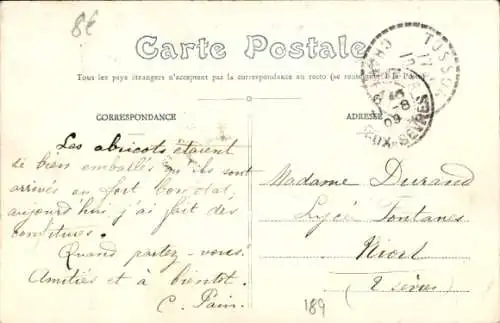 8€
Carte Postale
Tous les pays étrangers n'acceptent pas la correspondance au recto (se renseigner à la Poste)
CORRESPONDANCE
ADRESSE
DEUX-SÈVRES
Les abricots étaient
si bien emballés qu'ils sont
arrivés en fort bon état,
aujourd'hui j'ai fait des
confitures.
Quand partez-vous?
Amitiés et à bientôt.
C. Pain.
Madame Durand
Lycée Fontanes
Niort
(2 Sèvres)
189